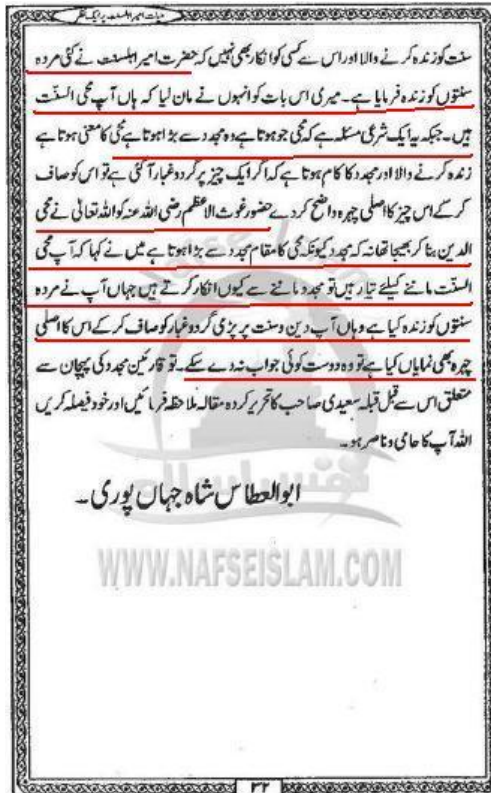 حیات امیر اہلسنت پر ایک نظر
سنت کو زندہ کرنے والا اور اس سے کسی کو انکار بھی نہیں کہ حضرت امیر اہلسنت نے کئی مردہ
سنتوں کو زندہ فرمایا ہے۔ میری اس بات کو انہوں نے مان لیا کہ ہاں آپ محی السنت
ہیں۔ جبکہ یہ ایک شرعی مسئلہ ہے کہ محی جو ہوتا ہے وہ مجدد سے بڑا ہوتا ہے محی کا معنی ہوتا ہے
زندہ کرنے والا اور مجدد کا کام ہوتا ہے کہ اگر ایک چیز پر گرد و غبار آ گئی ہے تو اس کو صاف
کر کے اس چیز کا اصلی چہرہ واضح کر دے حضور غوث الاعظم رضی اللہ عنہ کو اللہ تعالیٰ نے محی
الدین بنا کر بھیجا تھا نہ کہ مجدد کیونکہ محی کا مقام مجدد سے بڑا ہوتا ہے میں نے کہا کہ آپ محی
السنت ماننے کیلئے تیار ہیں تو مجدد ماننے سے کیوں انکار کرتے ہیں جہاں آپ نے مردہ
سنتوں کو زندہ کیا ہے وہاں آپ دین و سنت پر پڑی گرد و غبار کو صاف کر کے اس کا اصلی
چہرہ بھی نمایاں کیا ہے تو وہ دوست کوئی جواب نہ دے سکے۔ تو قارئین مجدد کی پہچان سے
متعلق اس سے قبل قبلہ سعیدی صاحب کا تحریر کردہ مقالہ ملاحظہ فرمائیں اور خود فیصلہ کریں
اللہ آپ کا حامی و ناصر ہو۔
ابوالعطاس شاہ جہاں پوری۔
نفس اسلام
WWW.NAFSEISLAM.COM
۳۲